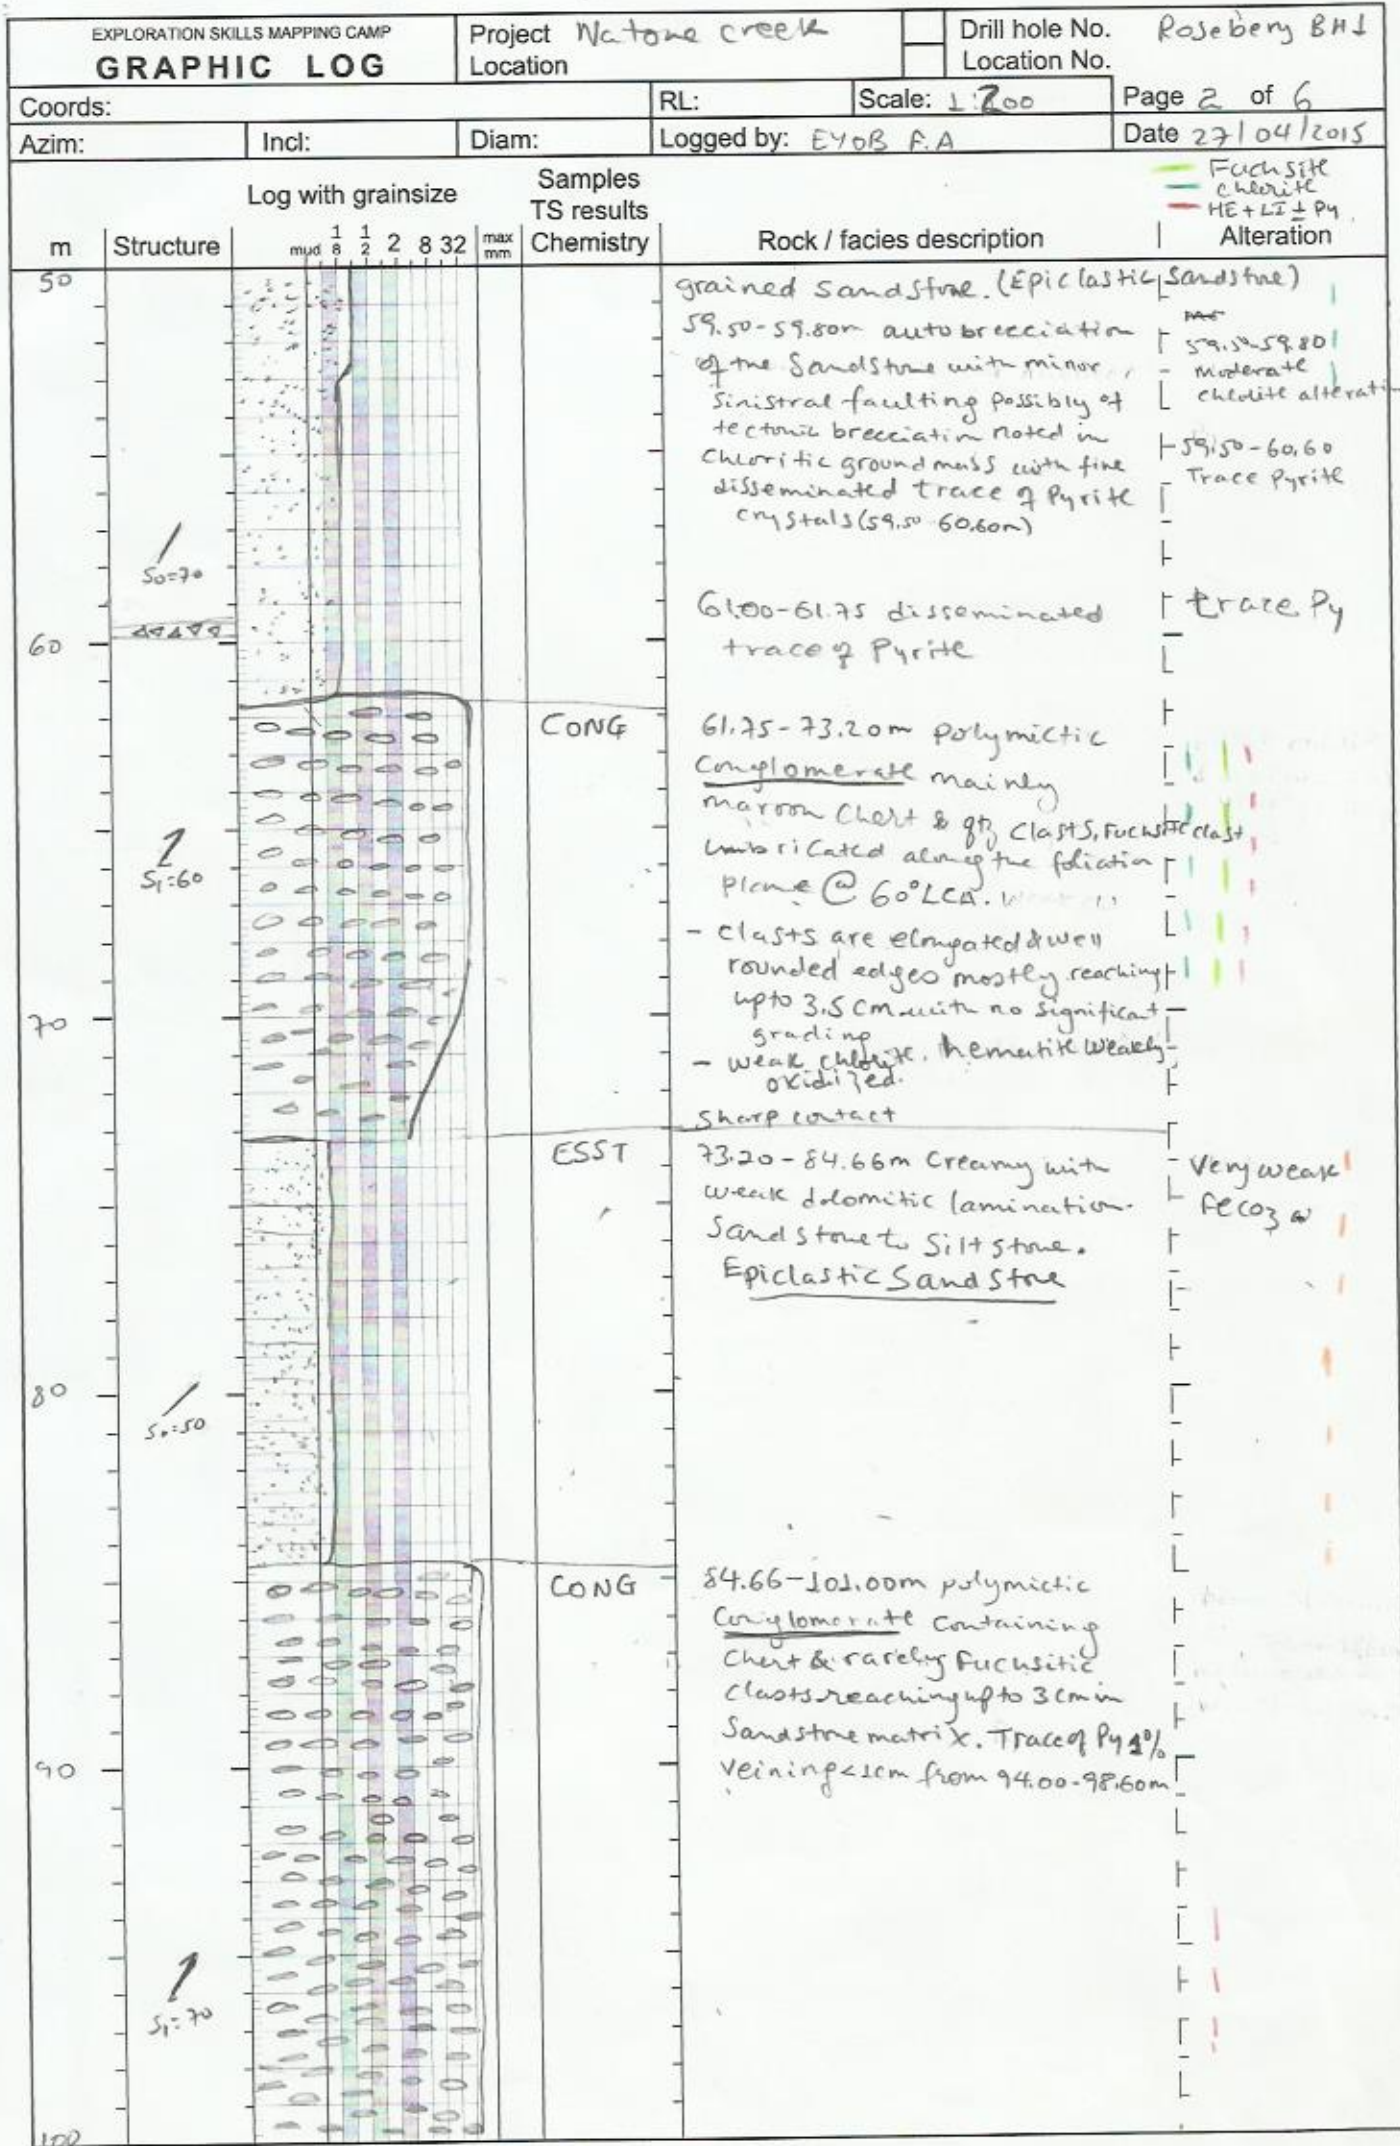 EXPLORATION SKILLS MAPPING CAMP
GRAPHIC LOG
Project Natone creek
Location
Drill hole No. Rosebery BH1
Location No.
Coords:
RL:
Scale: 1:200
Page 2 of 6
Azim:
Incl:
Diam:
Logged by: EYOB F.A
Date 27/04/2015
Fuchsite
chlorite
HE+LI±Py
m
Structure
Log with grainsize
mud 1/8 1/2 2 8 32
max mm
Samples
TS results
Chemistry
Rock / facies description
Alteration
50
grained sandstone. (Epiclastic Sandstone)
59.50-59.80m autobrecciation
of the Sandstone with minor
Sinistral faulting possibly of
tectonic brecciation noted in
Chloritic groundmass with fine
disseminated trace of Pyrite
crystals (59.50-60.60m)
59.50-59.80
moderate
chlolite alterati
59.50-60.60
Trace Pyrite
S0=70
60
61.00-61.75 disseminated
trace of Pyrite
trace Py
CONG
61.75-73.20m polymictic
Conglomerate mainly
maroon Chert & qtz clasts, Fuchsitic clast
imbricated along the foliation
plane @ 60°LCA.
S1=60
- clasts are elongated & well
rounded edges mostly reaching
upto 3.5cm with no significant
grading
- weak chlorite. hematite weakly
oxidized.
70
Sharp contact
ESST
73.20-84.66m Creamy with
weak dolomitic lamination.
Sandstone to Siltstone.
Epiclastic Sandstone
Very weak
FeCO3
80
S0=50
CONG
84.66-101.00m polymictic
Conglomerate Containing
Chert & rarely Fuchsitic
clasts reaching upto 3cm in
Sandstone matrix. Trace of Py 1%
veining <1cm from 94.00-98.60m
90
S1=70
100